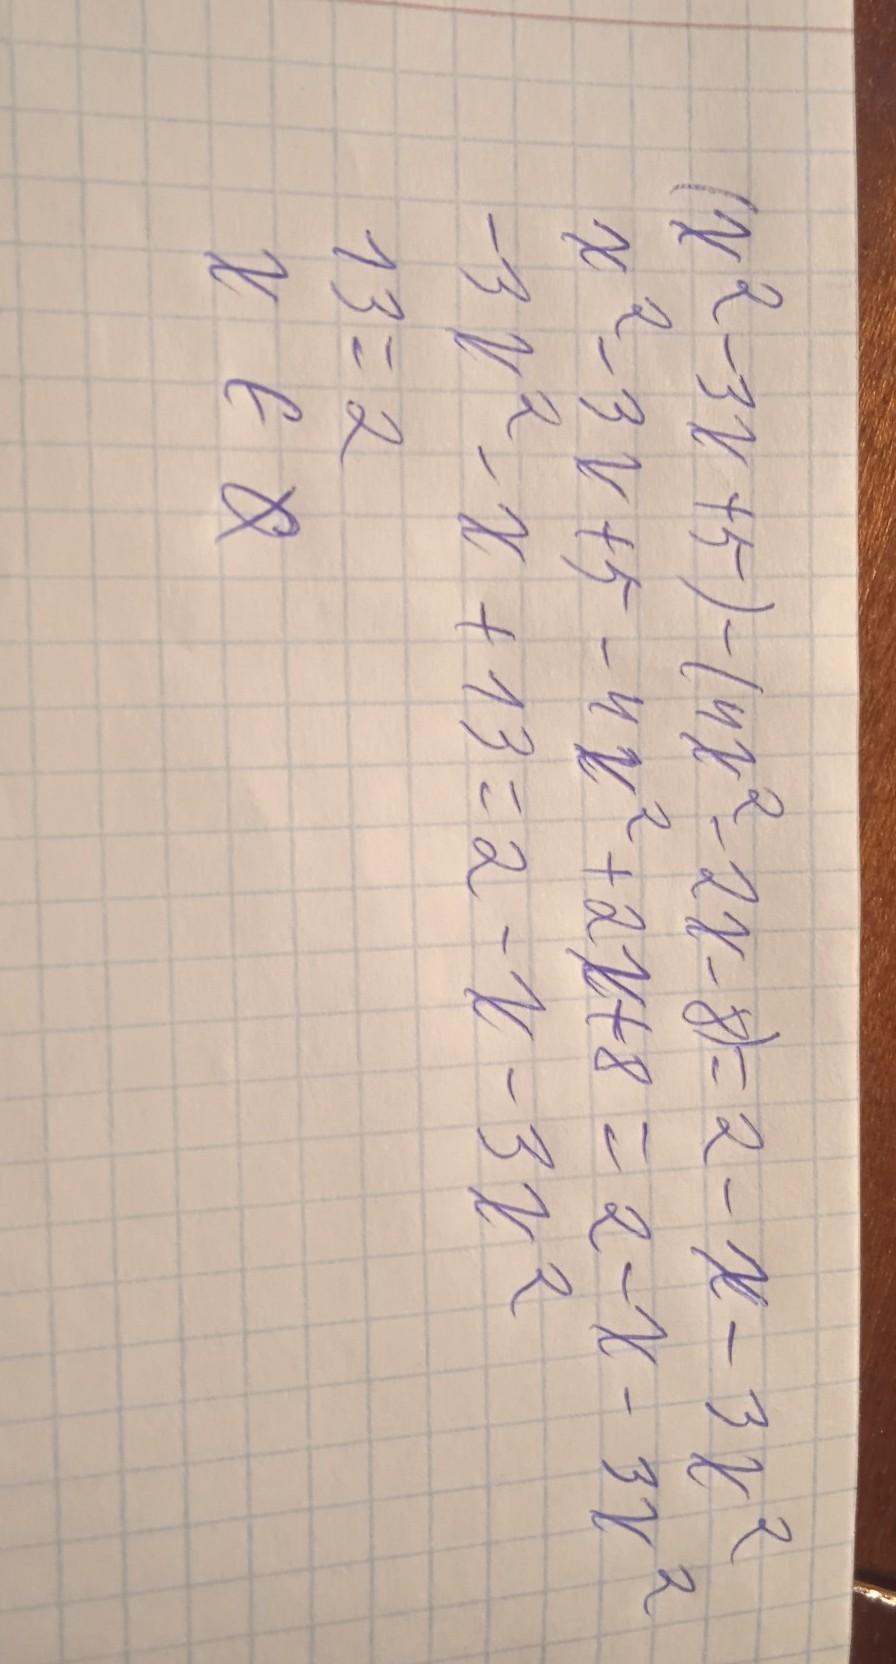 (x² - 3x + 5) - (4x² - 2x - 8) = 2 - x - 3x²
x² - 3x + 5 - 4x² + 2x + 8 = 2 - x - 3x²
-3x² - x + 13 = 2 - x - 3x²
13 = 2
x ∈ ∅